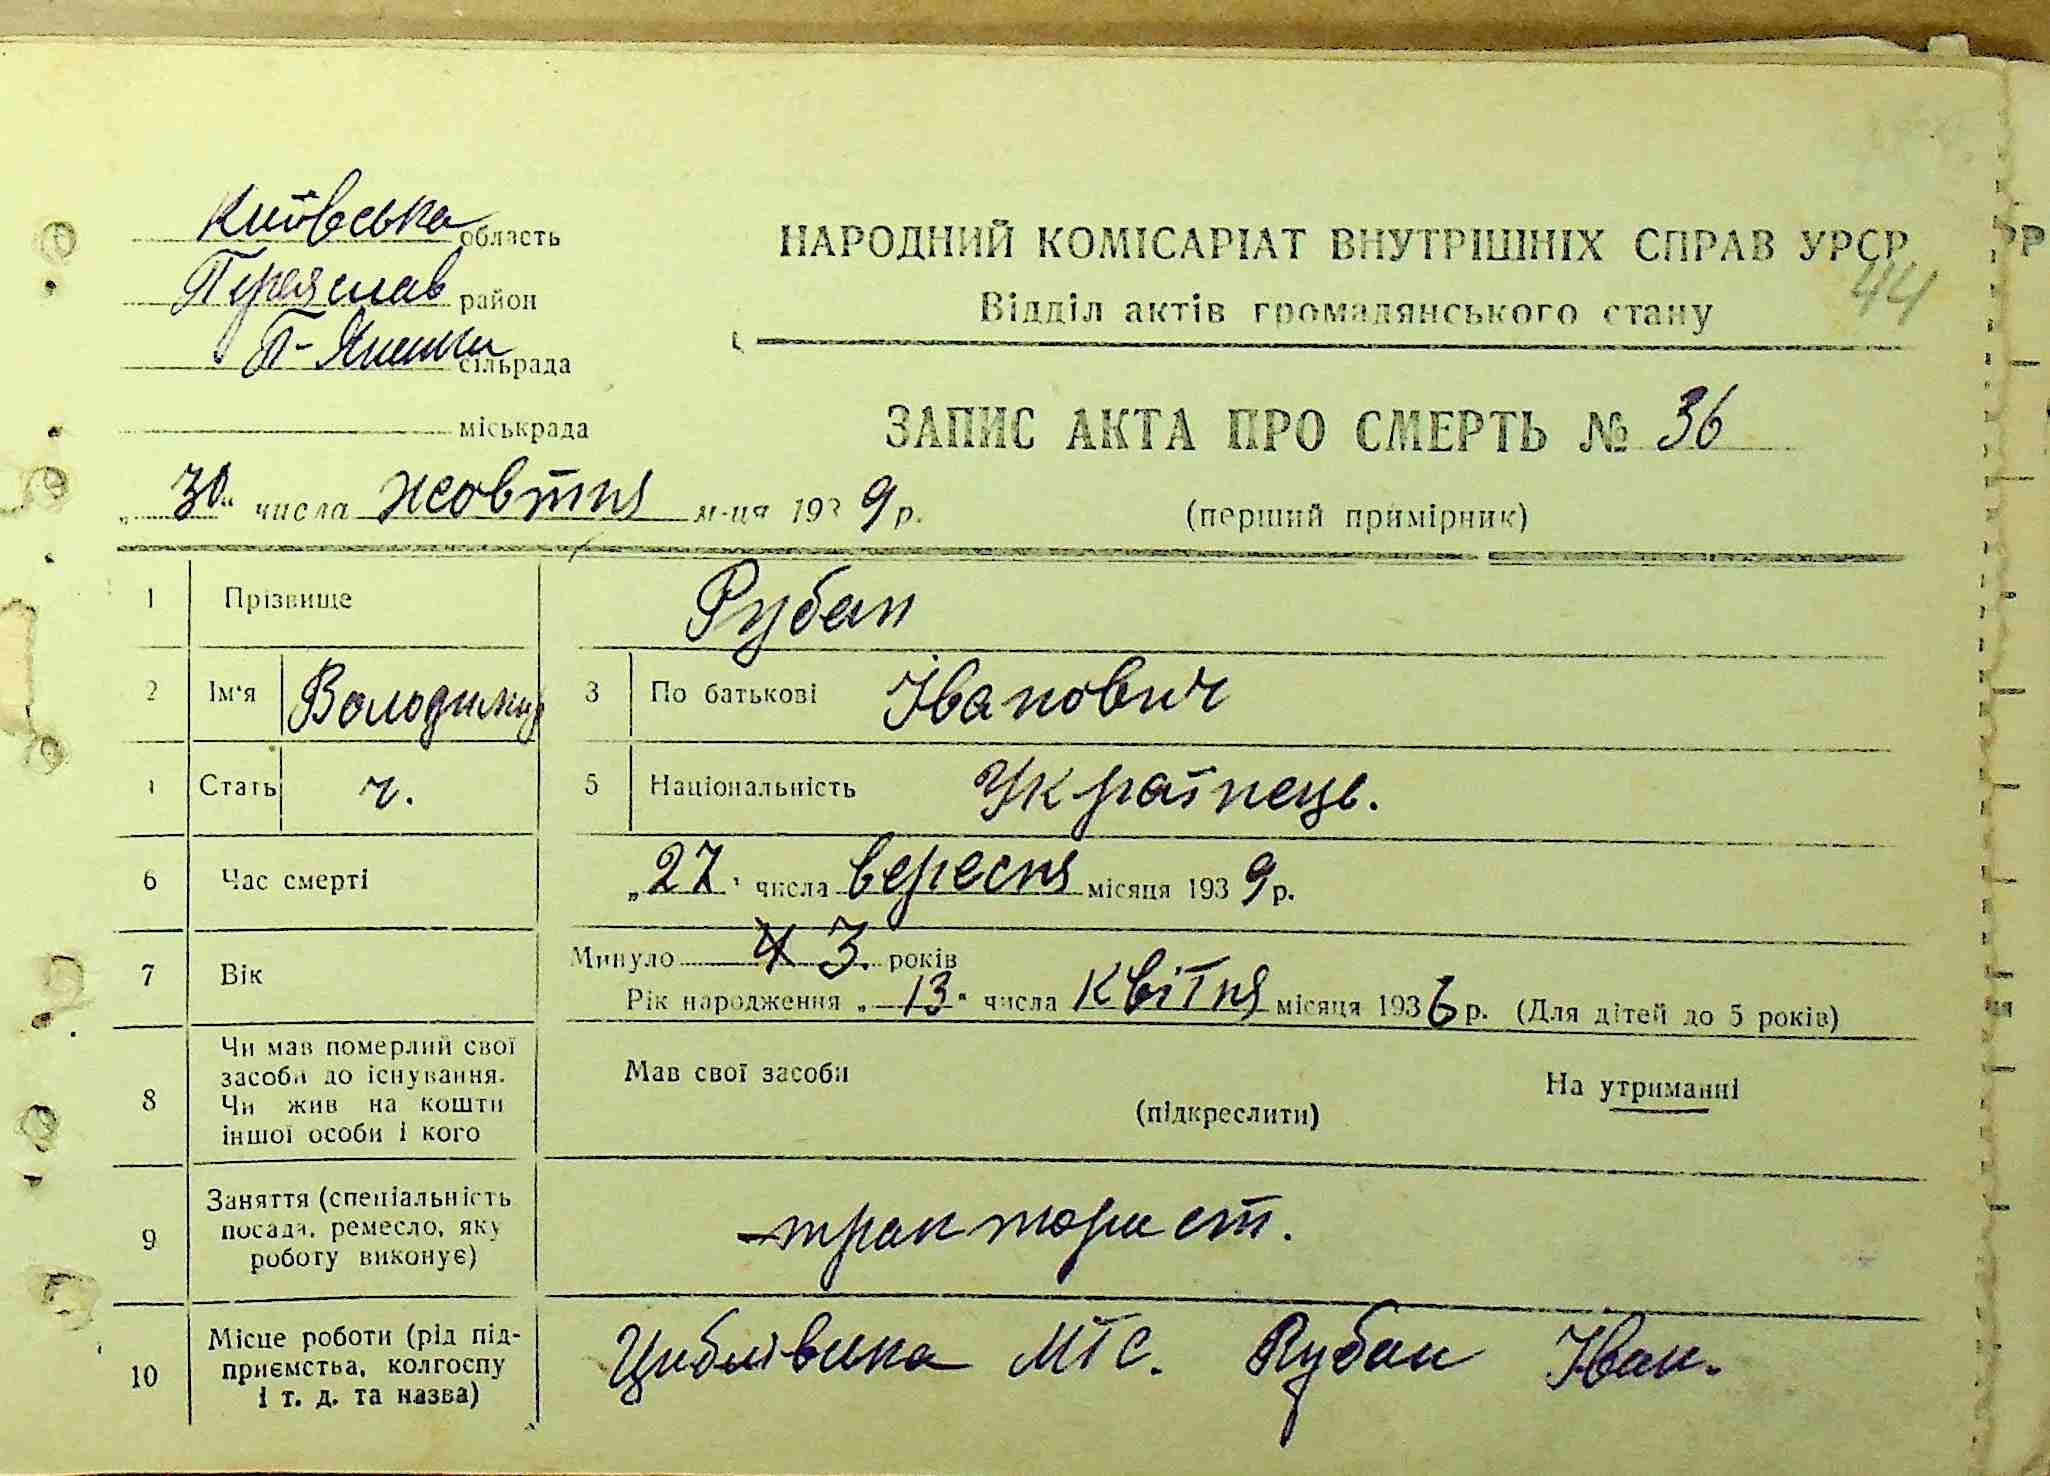 Київська область
Переяслав район
П-Яненки сільрада
міськрада
НАРОДНИЙ КОМІСАРІАТ ВНУТРІШНІХ СПРАВ УРСР
44
Відділ актів громадянського стану
ЗАПИС АКТА ПРО СМЕРТЬ № 36
„30“ числа жовтня м-ця 1939 р.
(перший примірник)
1 Прізвище Рубан
2 Ім'я Володимир 3 По батькові Іванович
4 Стать ч. 5 Національність Українець.
6 Час смерті „27“ числа вересня місяця 1939 р.
7 Вік Минуло 3. років
Рік народження „13“ числа квітня місяця 1936 р. (Для дітей до 5 років)
8 Чи мав померлий свої засоби до існування. Чи жив на кошти іншої особи і кого
Мав свої засоби (підкреслити) На утриманні
9 Заняття (спеціальність посада, ремесло, яку роботу виконує) тракторист.
10 Місце роботи (рід підприємства, колгоспу і т. д. та назва) Циблівська МТС. Рубан Іван.